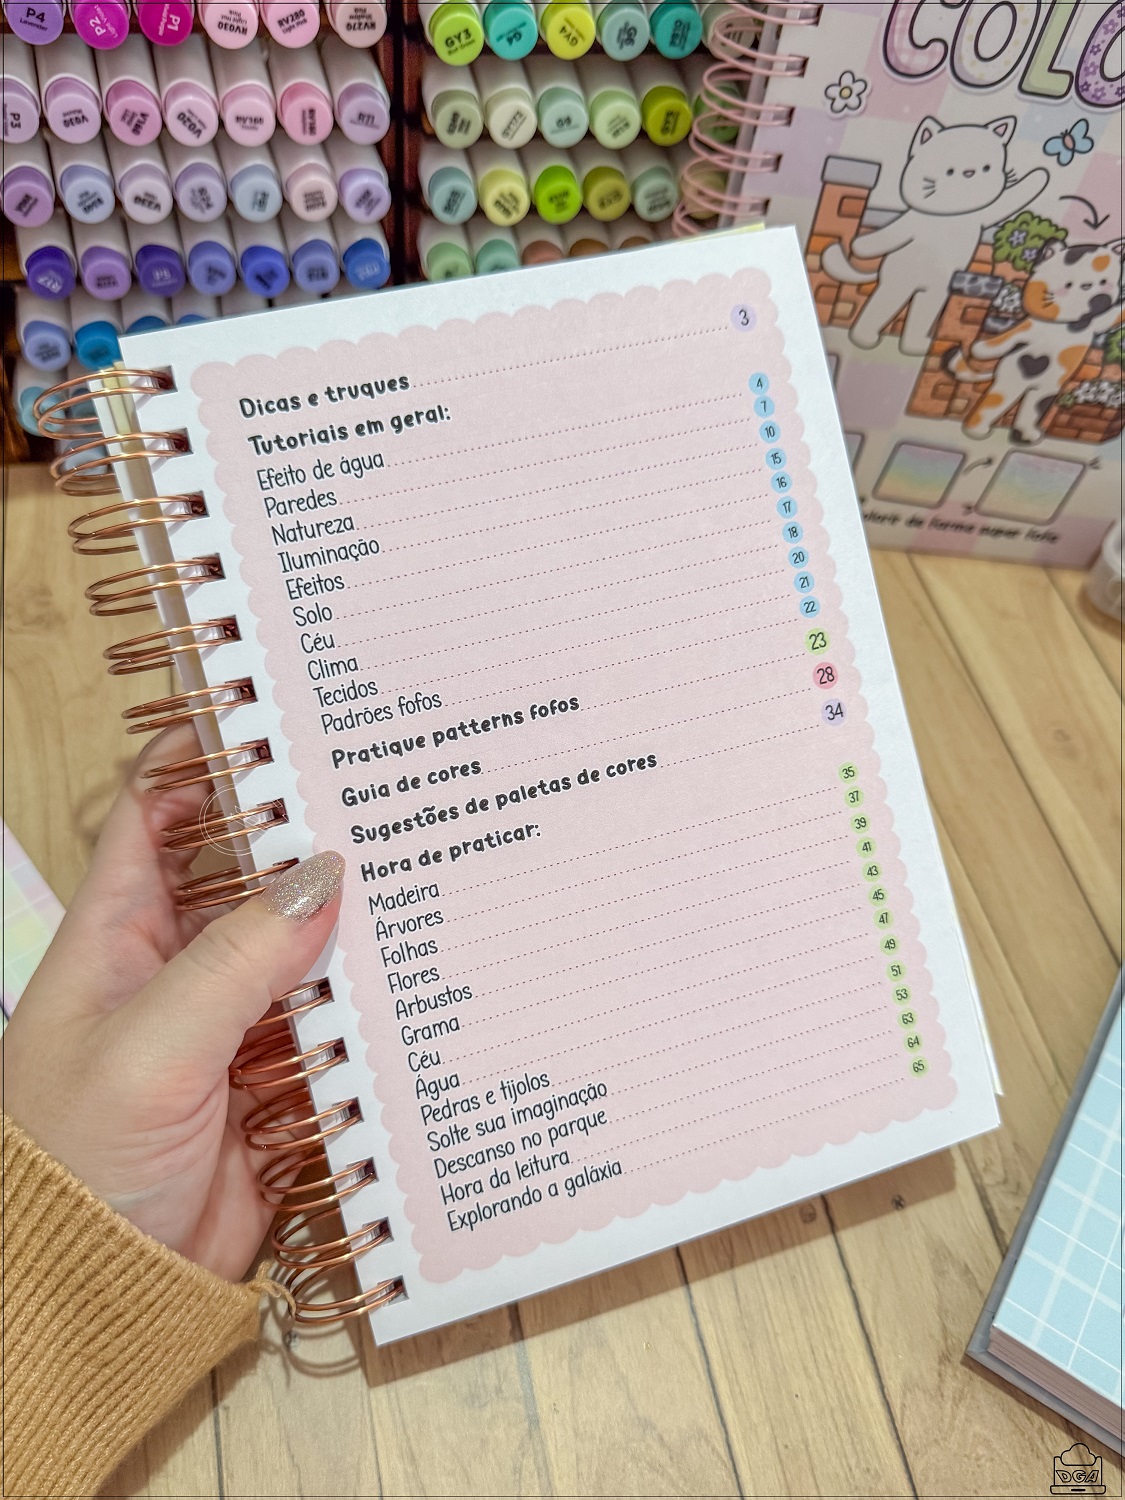 P4
P2
P1
RV030
RV279
GY3
G4
GY4
COLO
P3
V030
V020
Dicas e truques 3
Tutoriais em geral:
Efeito de água 4
Paredes 7
Natureza 10
Iluminação 15
Efeitos 16
Solo 17
Céu 18
Clima 20
Tecidos 21
Padrões fofos 22
Pratique patterns fofos 23
Guia de cores 28
Sugestões de paletas de cores 34
Hora de praticar:
Madeira 35
Árvores 37
Folhas 39
Flores 41
Arbustos 43
Grama 45
Céu 47
Água 49
Pedras e tijolos 51
Solte sua imaginação 53
Descanso no parque 63
Hora da leitura 64
Explorando a galáxia 65
colorir de forma super fofa
DGA